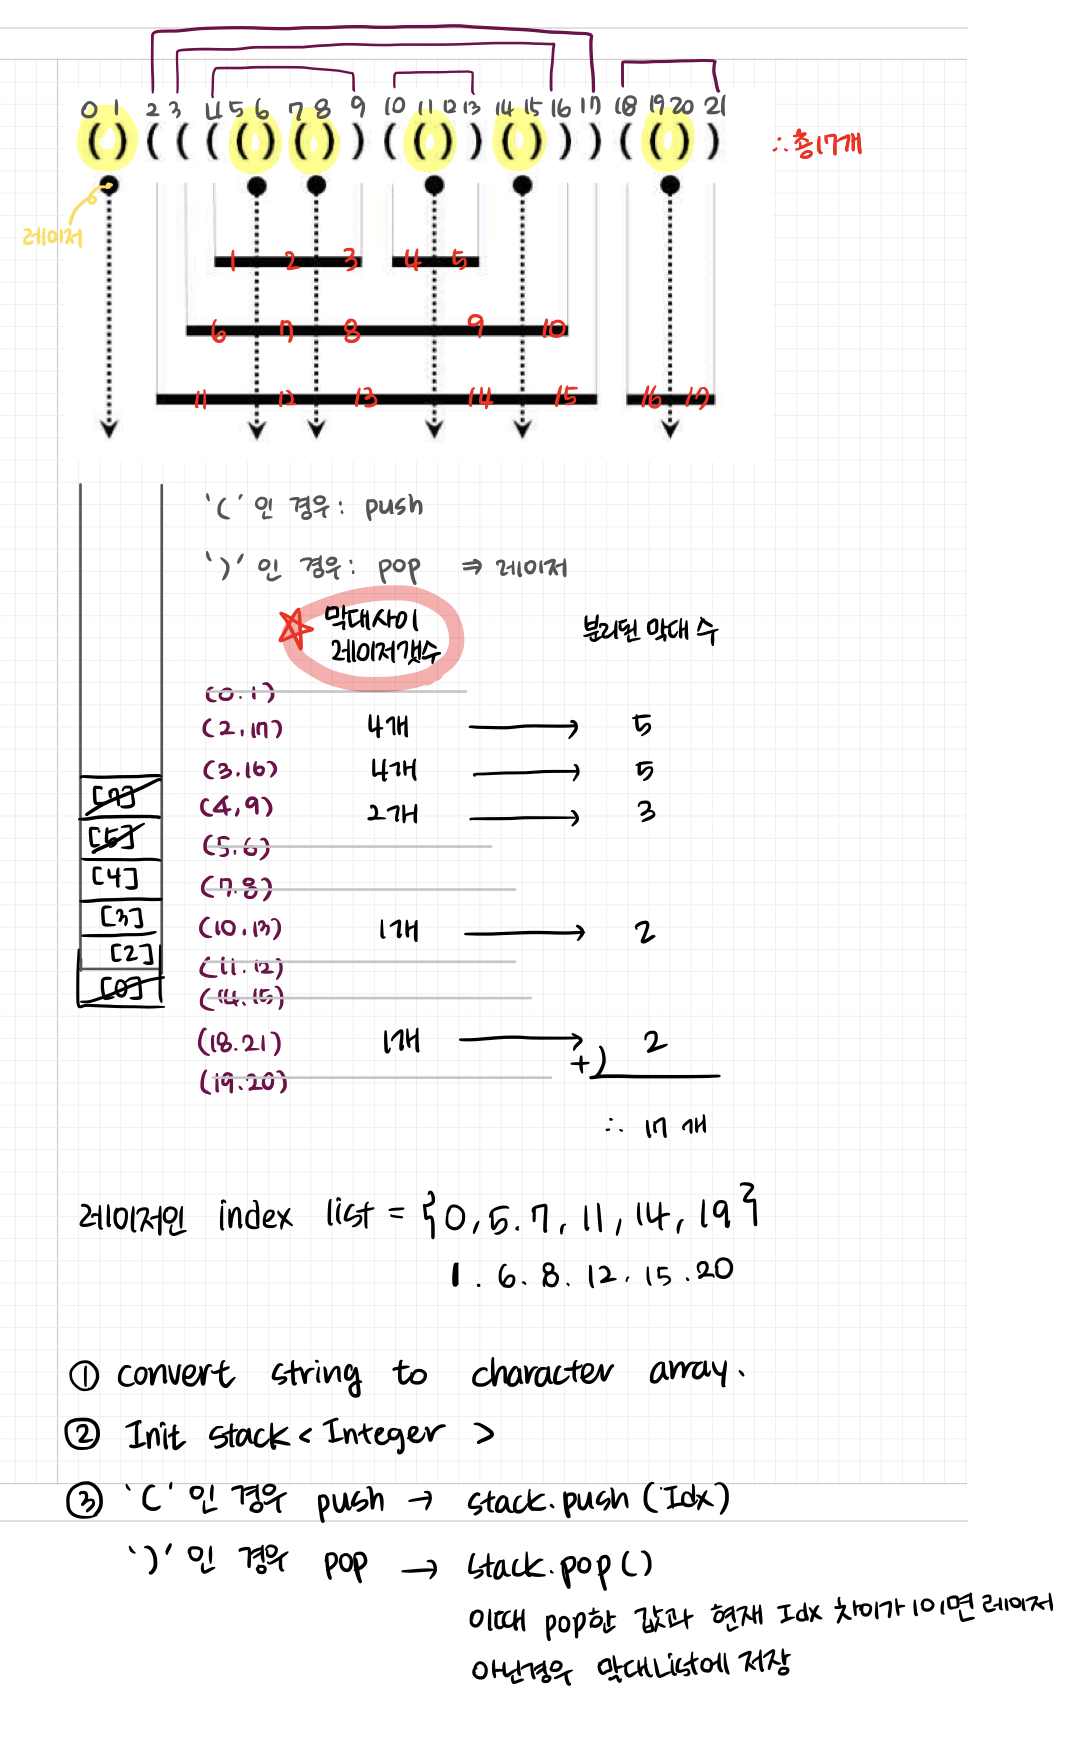 0 1 2 3 4 5 6 7 8 9 10 11 12 13 14 15 16 17 18 19 20 21
( ) ( ( ( ( ) ( ) ) ( ( ) ) ( ) ) ) ( ( ) )
∴ 총 17개
레이저
1 2 3 4 5
6 7 8 9 10
11 12 13 14 15 16 17
'(' 인 경우: push
')' 인 경우: pop ⇒ 레이저
막대사이 분리된 막대 수
레이저갯수
(0.1)
(2,17) 4개 → 5
(3.16) 4개 → 5
[7] (4,9) 2개 → 3
[5] (5.6)
[4] (7.8)
[3] (10.13) 1개 → 2
[2] (11.12)
[0] (14.15)
(18.21) 1개 → 2
+)
(19.20)
∴ 17 개
레이저인 index list = {0, 5. 7, 11, 14, 19}
1 . 6. 8. 12. 15 . 20
① convert string to character array.
② Init stack < Integer >
③ '(' 인 경우 push → stack.push (Idx)
')' 인 경우 pop → stack.pop ()
이때 pop한 값과 현재 Idx 차이가 1이면 레이저
아닌경우 막대List에 저장